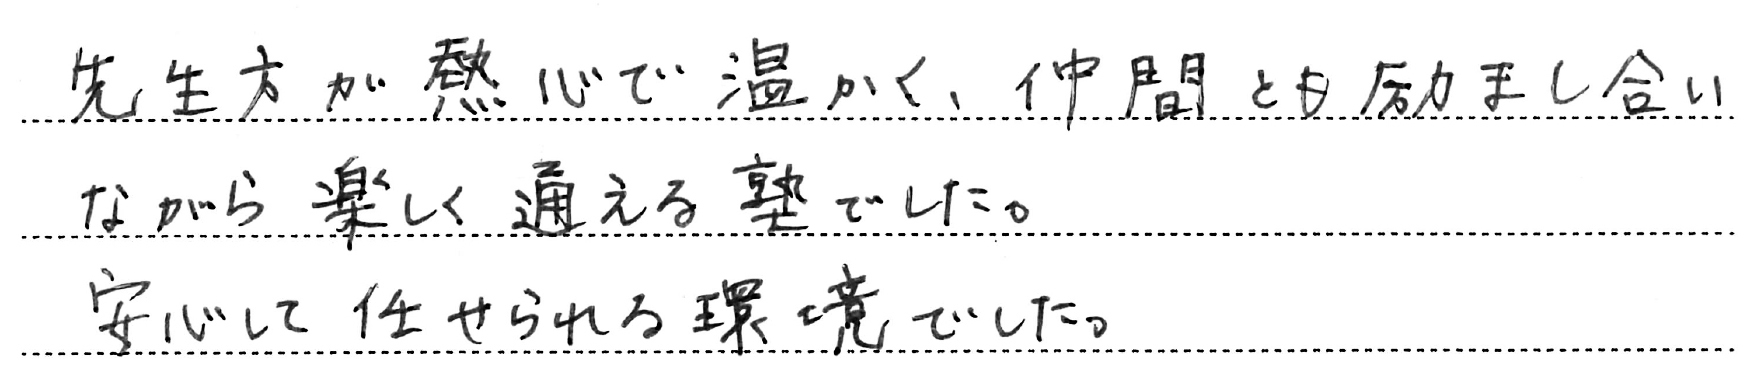 先生方が熱心で温かく、仲間とも励まし合い
ながら楽しく通える塾でした。
安心して任せられる環境でした。